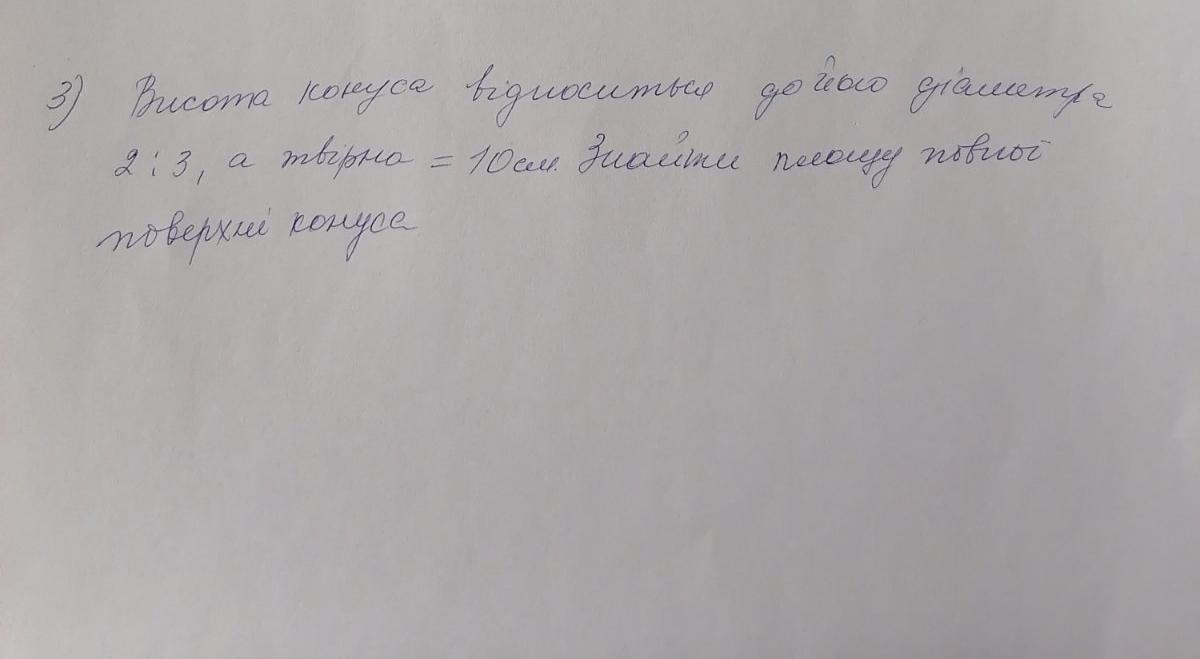 3) Висота конуса відноситься до його діаметра
2:3, а твірна = 10см. Знайти площу повної
поверхні конуса